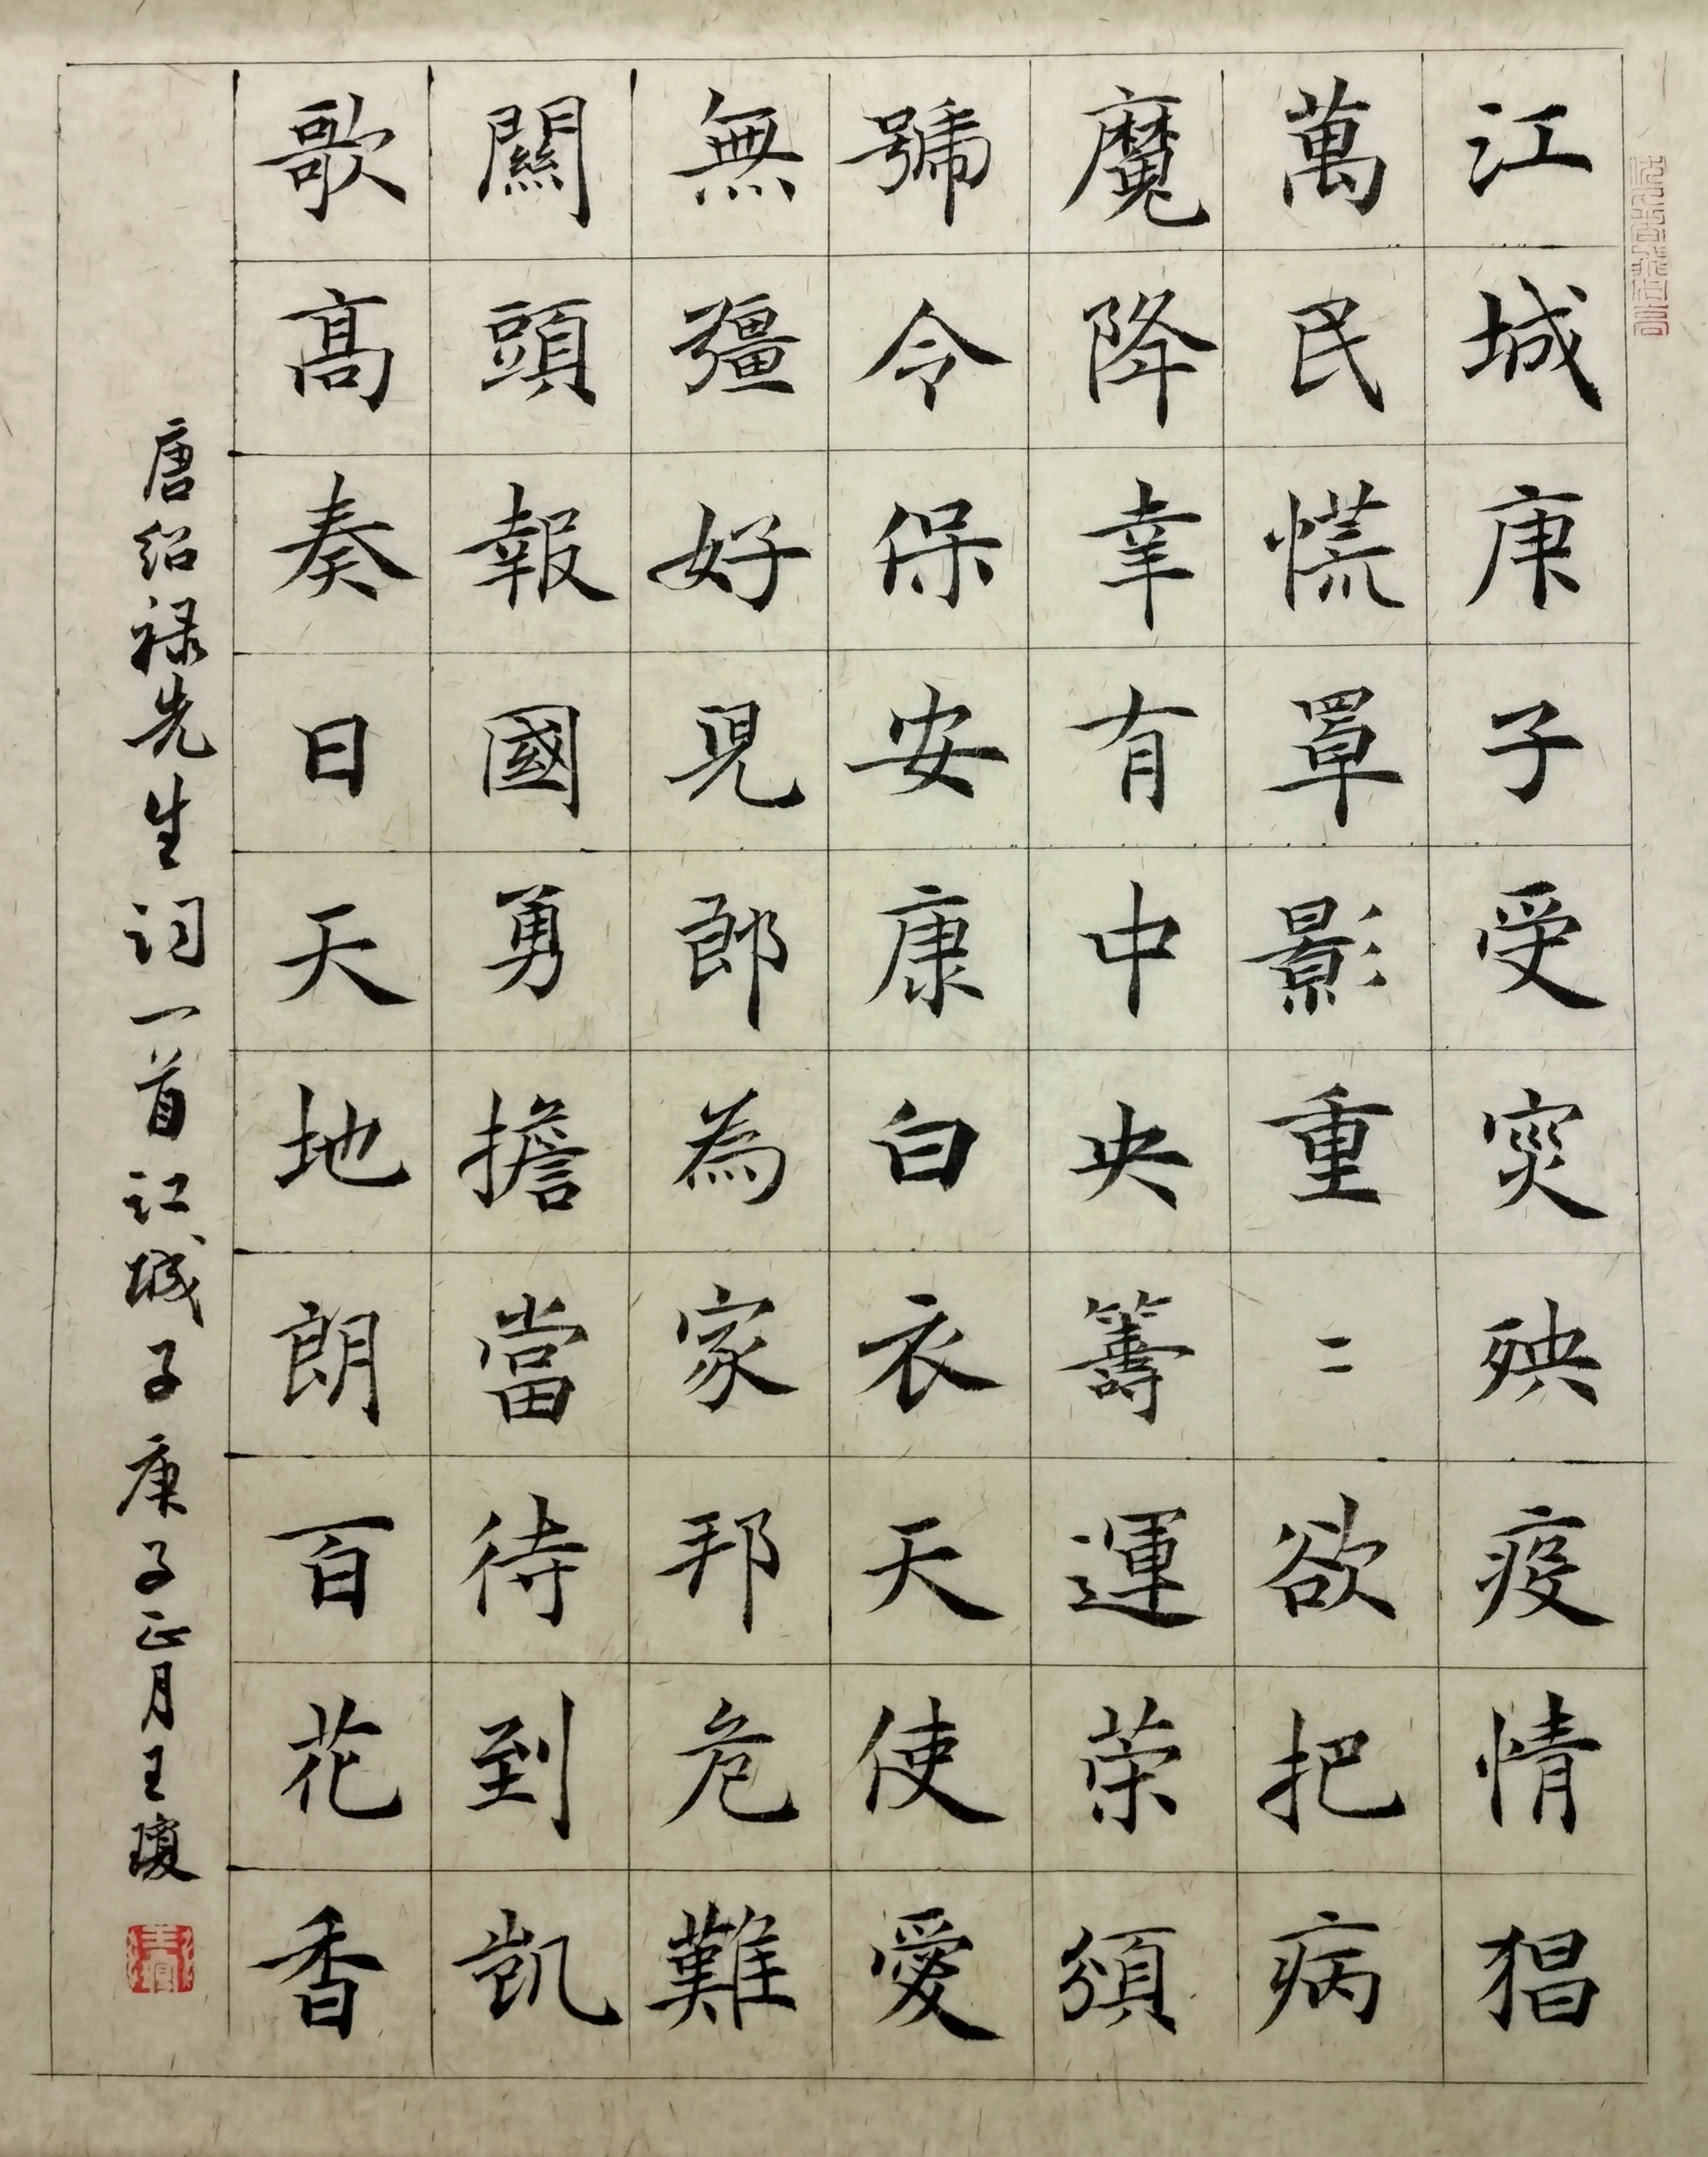 江城庚子受突殃疫情猖
萬民慌罩影重〻欲把病
魔降幸有中央籌運荣須
號令保安康白衣天使愛
無彊好児郎為家邦危難
關頭報國勇擔當待到凱
歌高奏日天地朗百花香
唐绍禄先生词一首江城子庚子正月王瓊